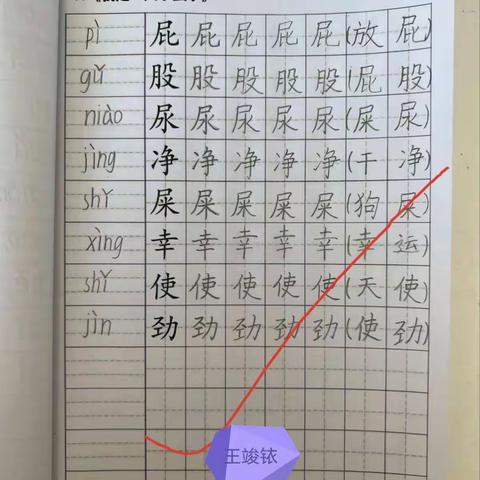 pì 屁 屁 屁 屁 屁 (放 屁)
gǔ 股 股 股 股 股 (屁 股)
niào 尿 尿 尿 尿 尿 (屎 尿)
jìng 净 净 净 净 净 (干 净)
shǐ 屎 屎 屎 屎 屎 (狗 屎)
xìng 幸 幸 幸 幸 幸 (幸 运)
shǐ 使 使 使 使 使 (天 使)
jìn 劲 劲 劲 劲 劲 (使 劲)
王竣铱